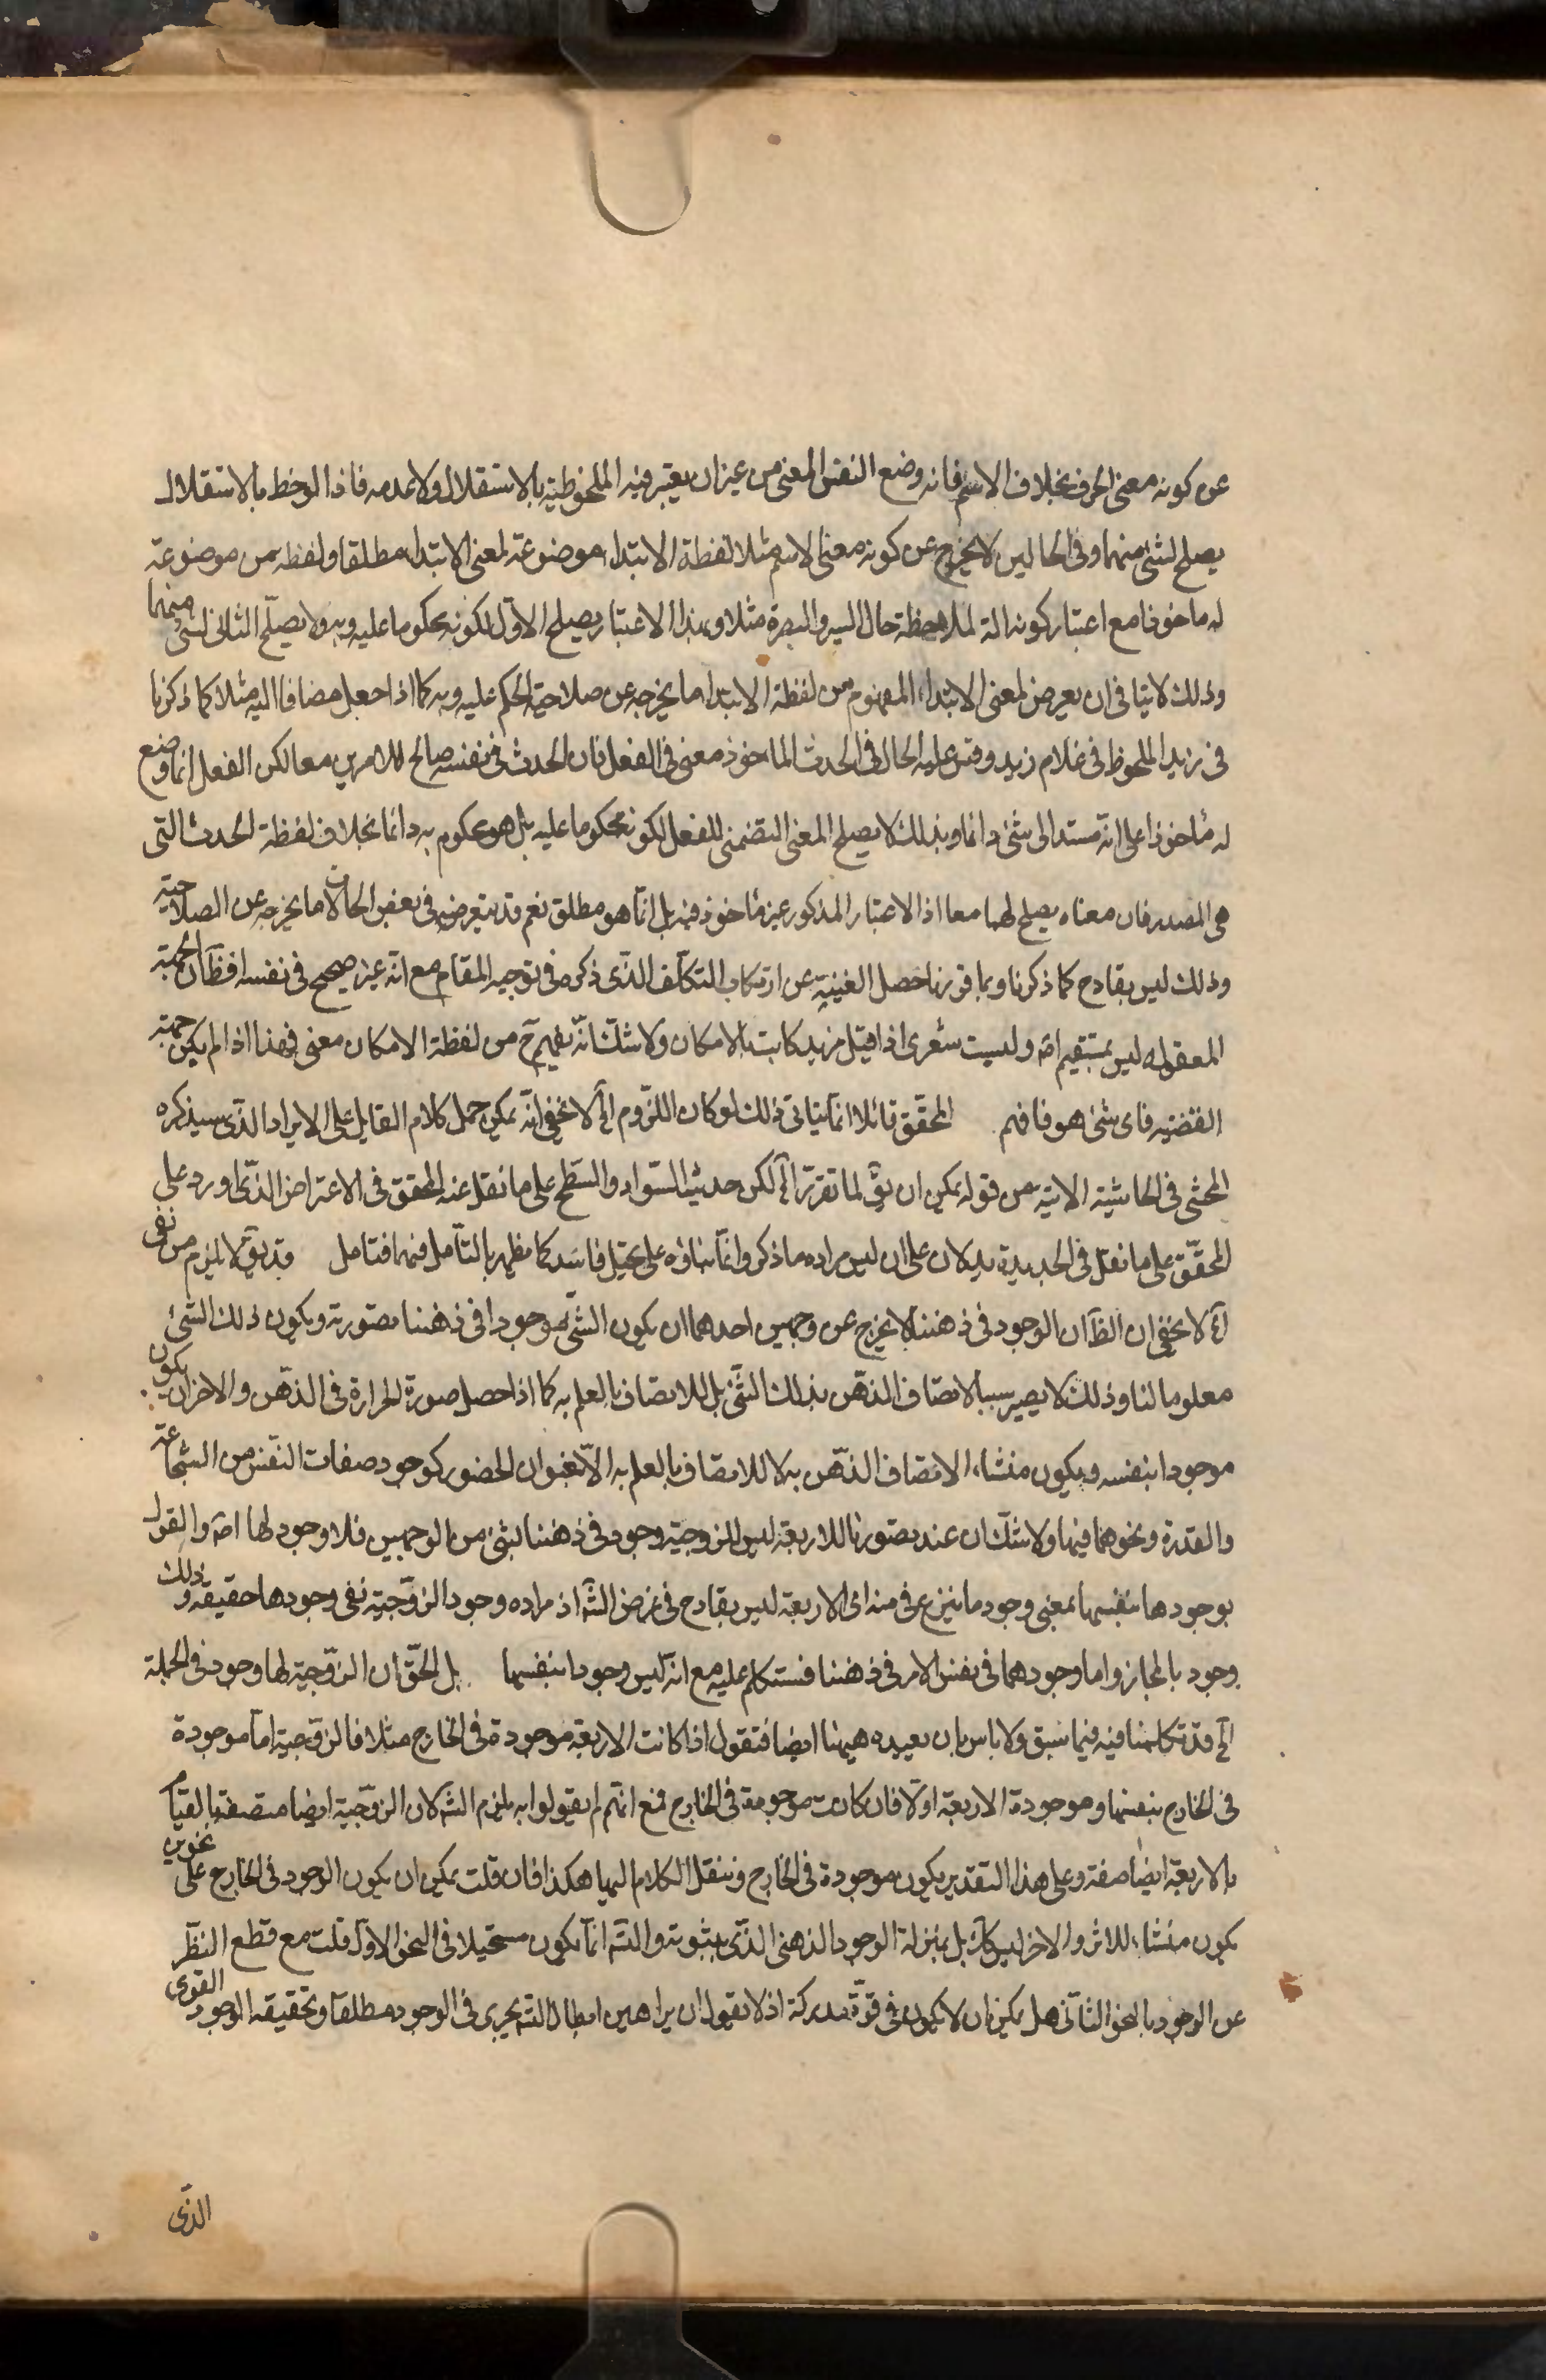 عن كونه معنى الحرف بخلاف الاسم فانه وضع النفس المعنى من غير ان يعتبر فيه الملحوظية بالاستقلال ولا عدمه فاذا لوحظ بالاستقلال
يصلح لشئ منهما وفى الحالين لا يخرج عن كونه معنى الاسم مثلا لفظة الابتداء موضوعة لمعنى الابتداء مطلقا ولفظه من موضوعة
له ماخوذا مع اعتبار كونه الة لملاحظة حال السير والبصرة مثلا وبهذا الاعتبار يصلح الاول لكونه محكوما عليه وبه ولا يصلح الثانى لشئ منهما
وذلك لا ينافى ان يعرض لمعنى الابتداء المفهوم من لفظة الابتداء ما يخرجه عن صلاحية الحكم عليه وبه كما اذا جعل مضافا اليه مثلا كما ذكرنا
فى زيد الملحوظ فى غلام زيد وقس عليه الحال فى الحدث الماخوذ معنى فى الفعل فان الحدث فى نفسه صالح للامرين معا لكن الفعل انما وضع
له ماخوذا على انه مسند الى شئ دائما وبذلك لا يصلح المعنى التضمنى للفعل لكونه محكوما عليه بل هو محكوم به دائما بخلاف لفظة الحدث التى
هى المصدر فان معناه يصلح لهما معا اذ الاعتبار المذكور غير ماخوذ فيه بل انما هو مطلق نعم قد يتعرضه فى بعض الحالات ما يخرجه عن الصلاحية
وذلك ليس بقادح كما ذكرنا وبما قررنا حصل الغنية عن ارتكاب التكلف الذى ذكره فى توجيه المقام مع انه غير صحيح فى نفسه اذ ظ ان الجهة
المعقولة ليس بمستقيم اصّ وليست شعرى اذا قيل زيد كاتب بالامكان ولا شك انه يفهم ح من لفظة الامكان معنى فهذا اذا لم يكن جهة
القضيه فاى شئ هو فافهم المحقق قائلا انما يتاتى ذلك لو كان اللزوم الخ لا يخفى انه يمكن حمل كلام القايل على الايراد الذى سيذكره
المحشى فى الحاشية الاتية من قوله يمكن ان يقّ لما تقرر الخ لكن حديث السواد والسطح على ما نقل عنه المحقق فى الاعتراض الذى اورد على
المحقق على ما نقل فى الجديدة يدلان على ان ليس مراده ما ذكر وانما بناؤه على تخيل فاسد كما يظهر بالتأمل فيهما فتامل وقد يقّ لا يلزم من نفى
الخ لا يخفى ان الظ ان الوجود فى ذهننا لا يخرج عن وجهين احدهما ان يكون الشئ موجودا فى ذهننا بصورته ويكون ذلك الشئ
معلوما لنا وذلك لا يصير سببا لاتصاف الذهن بذلك الشئ بل للاتصاف بالعلم به كما اذا حصل صورة الحرارة فى الذهن والاخر ان يكون
موجودا بنفسه ويكون منشاء الاتصاف الذهن به لا للاتصاف بالعلم به الا بعنوان الحضور كوجود صفات النفس من الشجاعة
والقدرة ونحوهما فيها ولا شك ان عند تصورنا للاربعة ليس للزوجية وجود فى ذهننا بشئ من الوجهين فلا وجود لها اصّ والقول
بوجودها بنفسها بمعنى وجود ما ينتزع عرفى منه اى الاربعة ليس بقادح فى غرض الشّ اذ مراده وجود الزوجية نفى وجودها حقيقة وذلك
وجود بالمجاز واما وجودهما فى نفس الامر فى ذهننا فستكلم عليه مع انه ليس وجودا بنفسها بل الحق ان الزوجية لها وجود فى الجملة
الخ قد تكلمنا فيه فيما سبق ولا باس بان نعيده هيهنا ايضا فنقول اذا كانت الاربعة موجودة فى الخارج مثلا فالزوجية اما موجودة
فى الخارج بنفسها وموجودة الاربعة اولا فان كانت موجودة فى الخارج فمع انهم لم يقولوا به يلزم التسّ لان الزوجية ايضا متصفة بالقيام
بالاربعة ايضا صفة وعلى هذا التقدير يكون موجودة فى الخارج وننقل الكلام اليها هكذا فان قلت يمكن ان يكون الوجود فى الخارج على نحوين
يكون منشاء للاثر والاخر ليس كك بل بمنزلة الوجود الذهنى الذى يثبوته والتسّ انما يكون مستحيلا فى النحو الاول قلت مع قطع النظر
عن الوجود بالنحو الثانى هل يمكن ان لا يكون فى قوة مدركة اذ لا نقول ان براهين ابطال التسّ يجرى فى الوجود مطلقا وتحقيقه الوجود القوى
الذى